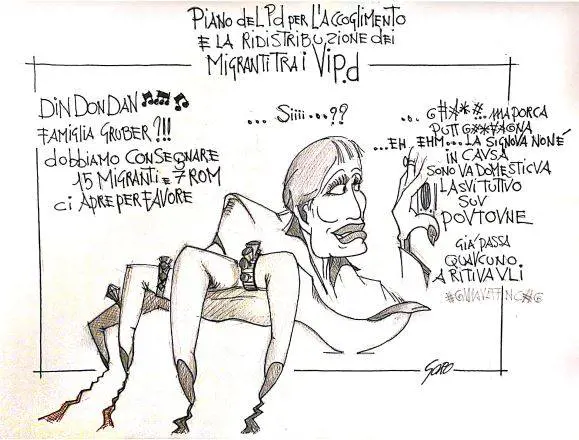 PIANO deL Pd peR L'ACCOGLIMENTO
E LA RIDISTRIBUZIONE dei
MIGRANTI TRA i ViP.d
DiN DON DAN
FAMIGLIA GRUBER?!!!
dobbiAMO CONSEGNARE
15 MIGRANTI E 7 ROM
Ci APRE PER FAVORE
... Siiii...??
... G#*#... MA PORCA
PUTTG@*#@NA
...EH EHM.... LA SIGNOVA NON É
IN CAVSA
SONO VA DOMESTICVA
LASVI TUTVO
SUV
POVTOVNE
GIÁ PASSA
QUAVCUNO
A RITIVAVLI